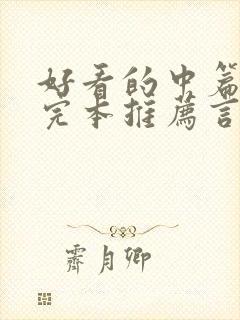 好看的中篇
完本推薦言
霽月卿